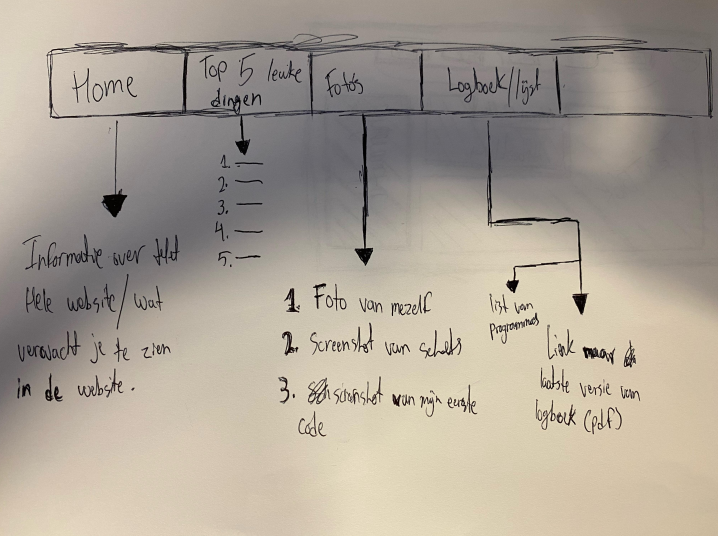 Home
Top 5 leuke
dingen
Foto's
Logboek/lijst
1.
2.
3.
4.
5.
Informatie over
Hele website/wat
verwacht je te zien
in de website.
1. Foto van mezelf
2. Screenshot van schets
3. screenshot van mijn eerste
code
list van
programmas
Link naar de
laatste versie van
logboek (pdf)